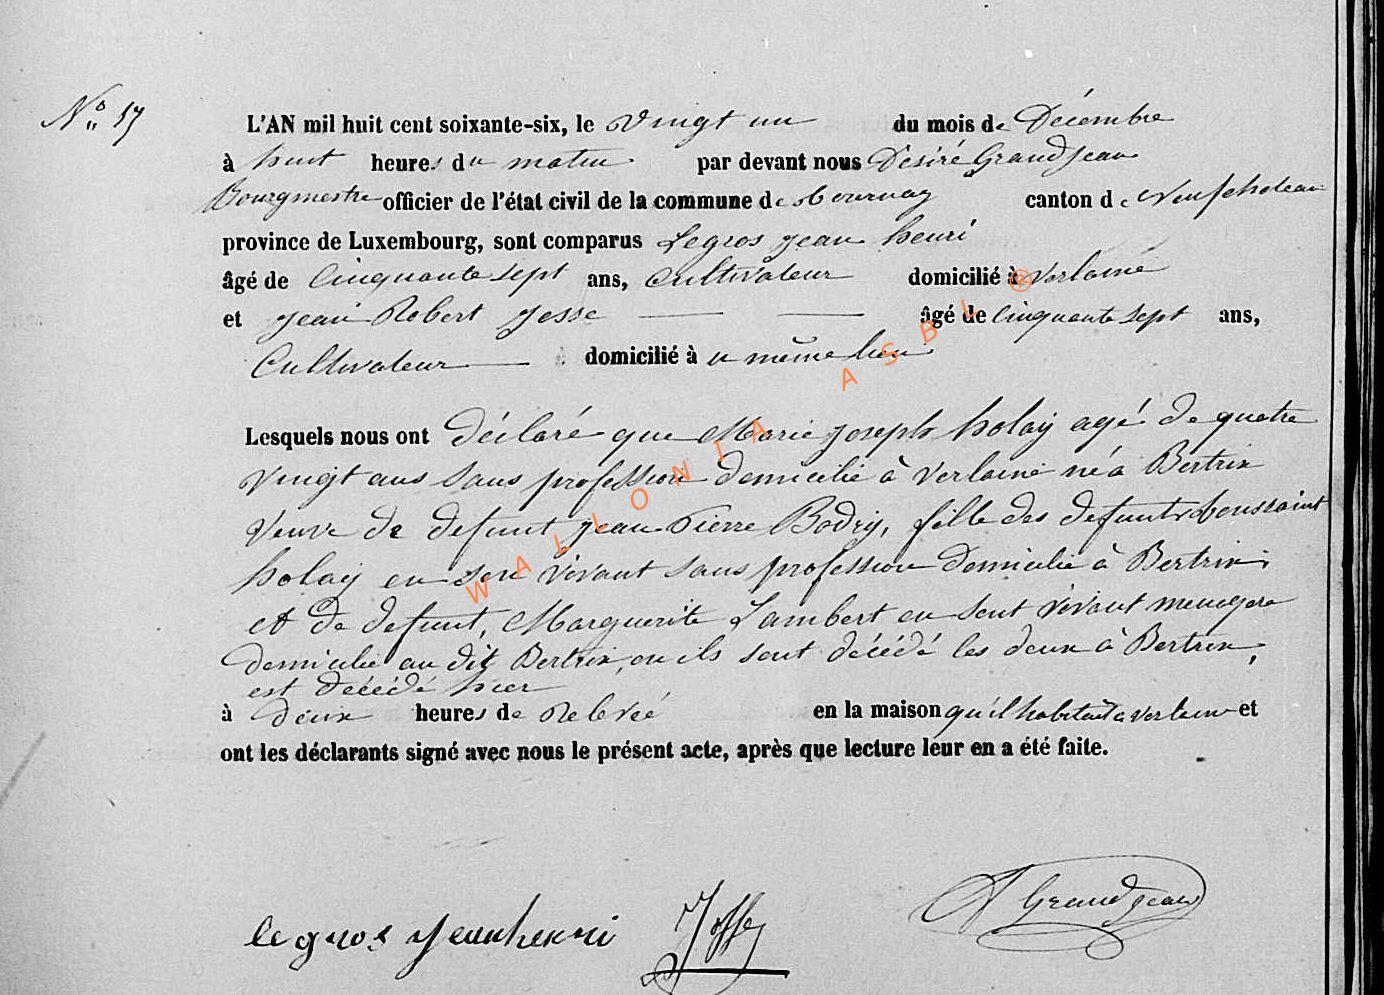 N° 17
L'AN mil huit cent soixante-six, le Vingt un du mois de Décembre
à huit heures du matin par devant nous Désiré Grandjean
Bourgmestre officier de l'état civil de la commune de tournay canton de Neufchateau
province de Luxembourg, sont comparus Legros jean henri
âgé de Cinquante sept ans, Cultivateur domicilié à Verlaine
et jean Robert josse âgé de Cinquante sept ans,
Cultivateur domicilié à u même lieu
Lesquels nous ont déclaré que Marie joseph holay agé de quatre
Vingt ans sans profession domicilié à Verlaine né à Bertrix
Veuve de defunt jean Pierre Bodry, fille des defunts toussaint
holay en son vivant sans profession domicilié à Bertrix;
et de defunt, Marguerite Lambert en sont vivant menagere
domicilié au dit Bertrix, ou ils sont décédé les deux à Bertrix,
est décédé hier
à deux heures de Relevée en la maison qu'il habitait a verlaine et
ont les déclarants signé avec nous le présent acte, après que lecture leur en a été faite.
legros jeanhenri Josse D Grandjean
WALLONIA ASBL ®